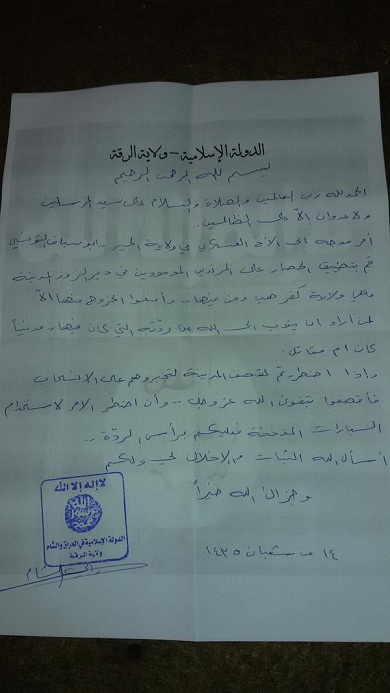 الدولة الإسلامية - ولاية الرقة
بسم الله الرحمن الرحيم
الحمد لله رب العالمين والصلاة والسلام على سيد المرسلين
ولا عدوان الا على الظالمين ..
أمر موجه الى الأخ العسكري في ولاية الخير - ابو سياف التونسي
قم بتضييق الحصار على المرتدين الموجودين في دير الزور المدينة
فهي ولاية كفر هي ومن فيها .. الخروج منها الا
لمن اراد ان يتوب الى الله من ردته التي كان فيها مدنياً
كان ام مقاتل .
واذا اضطررتم لقصف المدينة لتجبروهم على الانسحاب
فأقصفوا بتقوى الله عز وجل .. وأن اضطر الامر لاستخدام
السيارات المفخخة فعليكم برأس الردة ..
أسأل الله الثبات لي ولكم
وجزاك الله خيراً
١٤ من شعبان ١٤٣٥
لا اله الا الله
الله
رسول
محمد
الدولة الإسلامية في العراق والشام
ولاية الرقة